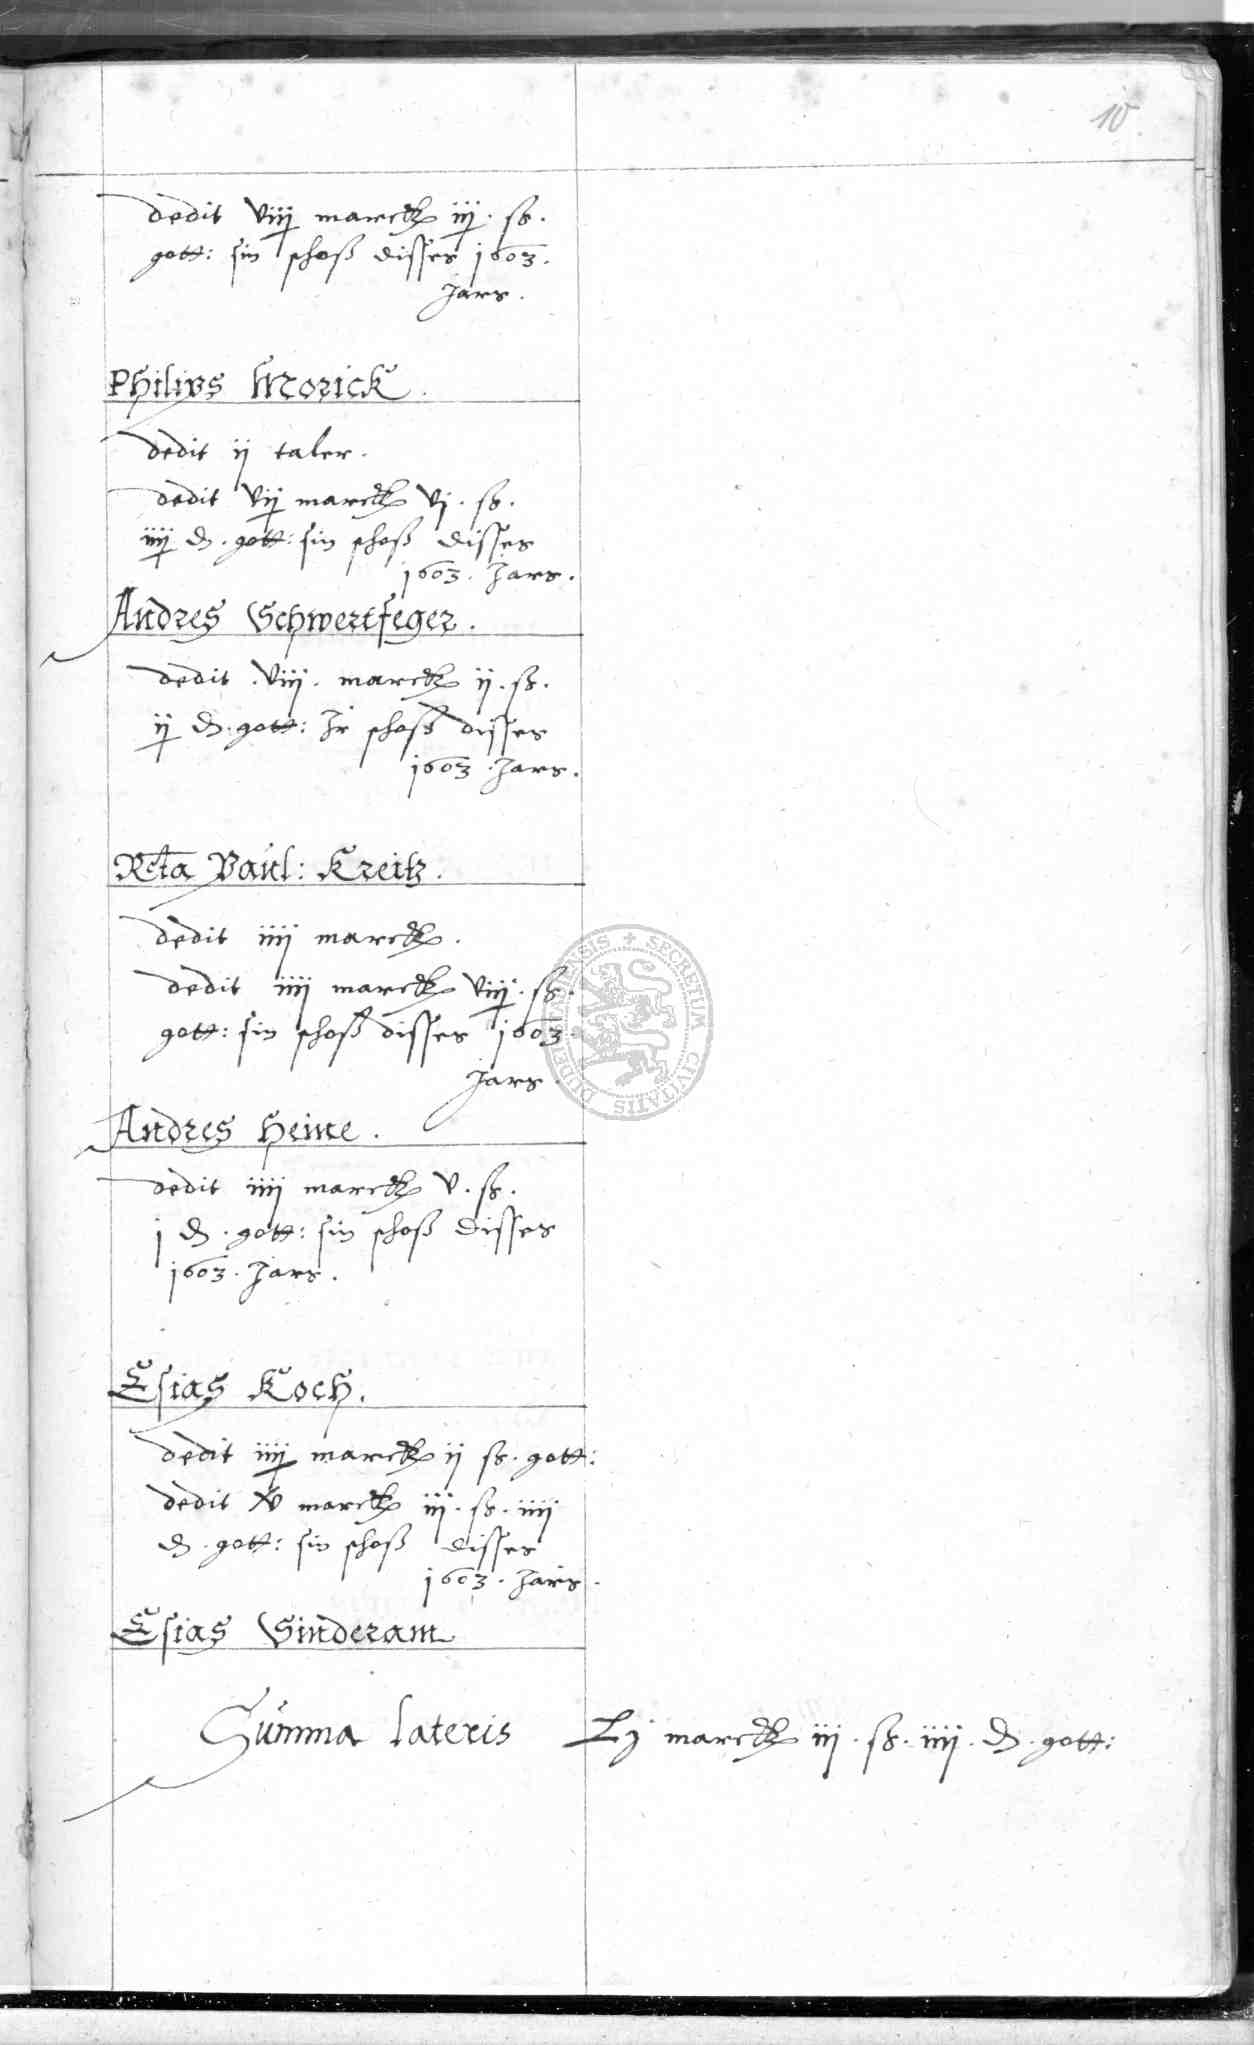 10
dedit viiij marck iij. ß.
gott: sin schoß disses 1603.
Jars.
Philips Morick.
dedit ij taler.
dedit vij marck vj. ß.
iiij d. gott: sin schoß disses
1603. Jars.
Andres Schwertfeger.
dedit. viij. marck ij. ß.
ij d. gott: Ir schoß disses
1603. Jars.
Rcta Paul: Kreitz.
dedit iiij marck.
dedit iiij marck viiij. ß.
gott: sin schoß disses 1603.
Jars.
Andres Heine.
dedit iiij marck v. ß.
j d. gott: sin schoß disses
1603. Jars.
Esias Koch.
dedit iiij marck ij ß. gott:
dedit marck iij. ß. iiij
d. gott: sin schoß disses
1603. Jars.
Esias Sinderam
Summa lateris Lj marck iij. ß. iiij. d. gott:
SECRETUM CIVITATIS